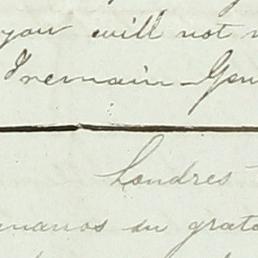 you will not
I remain Gen
Londres
manos su grata